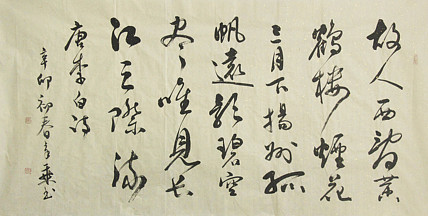 故人西辭黄
鶴樓煙花
三月下揚州孤
帆遠影碧空
盡唯見长
江天際流
唐李白诗
辛卯初春书